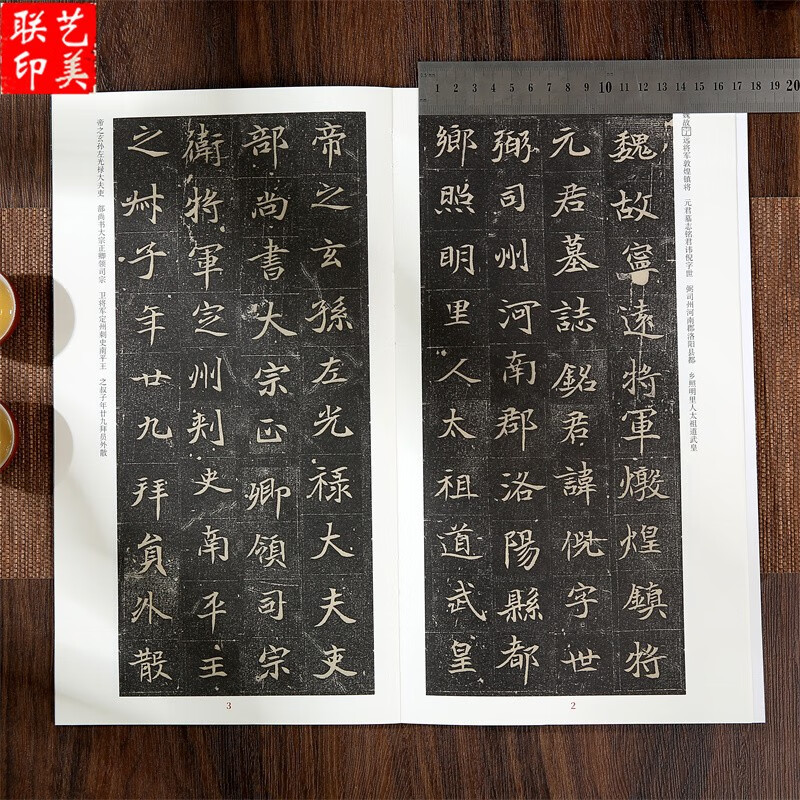 艺美
联印
1 2 3 4 5 6 7 8 9 10 11 12 13 14 15 16 17 18 19 20
魏故宁远将军敦煌镇将 元君墓志铭君讳倪字世 弼司州河南郡洛阳县都 乡照明里人太祖道武皇
魏故寧遠將軍燉煌鎮將
元君墓誌銘君諱倪字世
弼司州河南郡洛陽縣都
鄉照明里人太祖道武皇
2
帝之玄孫左光祿大夫吏
部尚書大宗正卿領司宗
衛將軍定州刺史南平王
之叔子年廿九拜員外散
帝之玄孙左光禄大夫吏 部尚书大宗正卿领司宗 卫将军定州刺史南平王 之叔子年廿九拜员外散
3